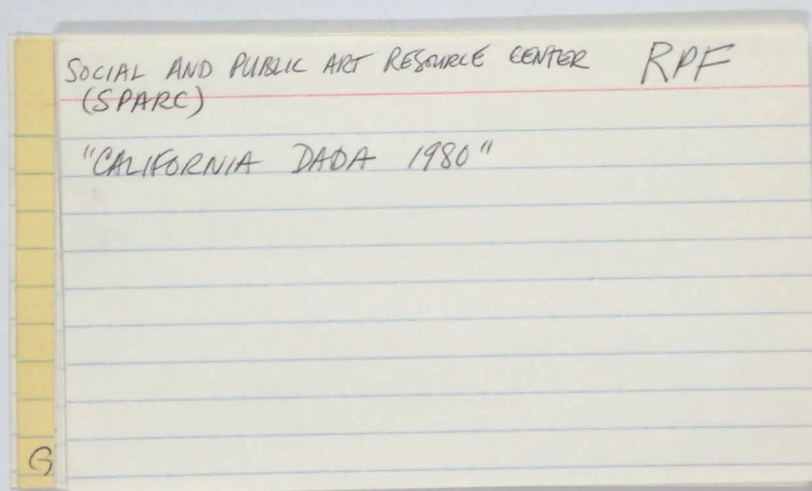 SOCIAL AND PUBLIC ART RESOURCE CENTER RPF
(SPARC)
"CALIFORNIA DADA 1980"